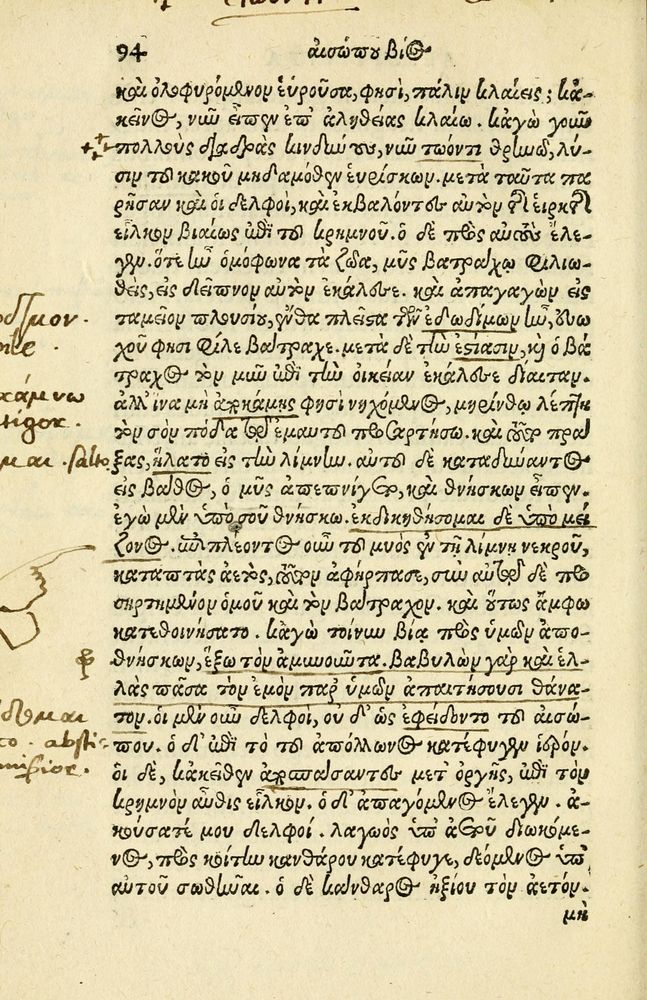 94 αἰσώπου βίος
καὶ ὀλοφυρόμενον εὑροῦσα, φησὶ, πάλιν κλαίεις; κἀ-
κεῖνος, νῦν εἶπεν ἐπ' ἀληθείας κλαίω. κἀγὼ γοῦν
πολλοὺς διαδρὰς κινδύνους, νῦν τωόντι θρηνῶ, λύ-
σιν τοῦ κακοῦ μηδαμόθεν εὑρίσκων. μετὰ ταῦτα πα
ρῆσαν καὶ οἱ δελφοὶ, καὶ ἐκβαλόντες αὐτὸν τῆς εἱρκτῆς
εἷλκον βιαίως ἐπὶ τοῦ κρημνοῦ. ὁ δὲ πρὸς αὐτοὺς ἔλε-
γεν. ὅτε ἦν ὁμόφωνα τὰ ζῶα, μῦς βατράχῳ φιλιω-
θεὶς, εἰς δεῖπνον αὐτὸν ἐκάλεσε. καὶ ἀπαγαγὼν εἰς
ταμεῖον πλουσίου, ἔνθα πλεῖστα τῶν ἐδωδίμων ἦν, εὐω
χοῦ φησι φίλε βάτραχε. μετὰ δὲ τὴν ἑστίασιν, καὶ ὁ βά
τραχος τὸν μῦν ἐπὶ τὴν οἰκείαν ἐκάλεσε δίαιταν.
ἀλλ' ἵνα μὴ ἀποκάμῃς φησὶ νηχόμενος, μηρίνθῳ λεπτῇ
τὸν σὸν πόδα τῷ ἐμαυτοῦ προσαρτήσω. καὶ τοῦτο πρά
ξας, ἥλατο εἰς τὴν λίμνην. αὐτοῦ δὲ καταδύναντος
εἰς βάθος, ὁ μῦς ἀπεπνίγετο, καὶ θνήσκων εἶπεν.
ἐγὼ μὲν ὑπὸ σοῦ θνήσκω. ἐκδικηθήσομαι δὲ ὑπὸ μεί
ζονος. ἐπιπλέοντος οὖν τοῦ μυὸς ἐν τῇ λίμνῃ νεκροῦ,
καταπτὰς ἀετὸς, τοῦτον ἀφήρπασε, σὺν αὐτῷ δὲ προ
σηρτημένον ὁμοῦ καὶ τὸν βάτραχον. καὶ οὕτως ἄμφω
κατεθοινήσατο. κἀγὼ τοίνυν βίᾳ πρὸς ὑμῶν ἀπο-
θνήσκων, ἕξω τὸν ἀμυνοῦντα. βαβυλὼν γὰρ καὶ ἑλ-
λὰς πᾶσα τὸν ἐμὸν παρ' ὑμῶν ἀπαιτήσουσι θάνα-
τον. οἱ μὲν οὖν δελφοὶ, οὐ δ' ὣς ἐφείδοντο τοῦ αἰσώ-
που. ὁ δ' ἐπὶ τὸ τοῦ ἀπόλλωνος κατέφυγεν ἱερόν.
οἱ δὲ, κἀκεῖθεν ἀποσπάσαντες μετ' ὀργῆς, ἐπὶ τὸν
κρημνὸν αὖθις εἷλκον. ὁ δ' ἀπαγόμενος ἔλεγεν. ἀ-
κούσατέ μου δελφοί. λαγωὸς ὑπ' ἀετοῦ διωκόμε-
νος, πρὸς κοίτην κανθάρου κατέφυγε, δεόμενος ὑπ'
αὐτοῦ σωθῆναι. ὁ δὲ κάνθαρος ἠξίου τὸν ἀετὸν.
μὴ
κάμνω
μαι . salto
abstι-